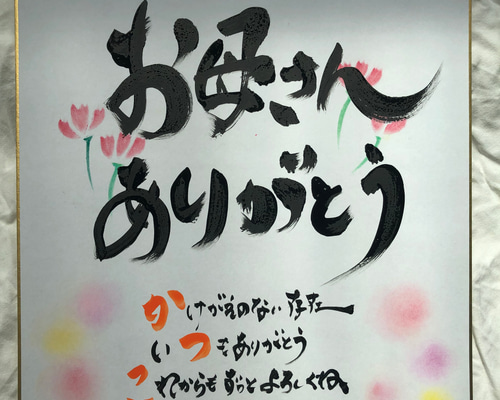 お母さん
ありがとう
かけがえのない存在
いつもありがとう
これからもずっとよろしくね